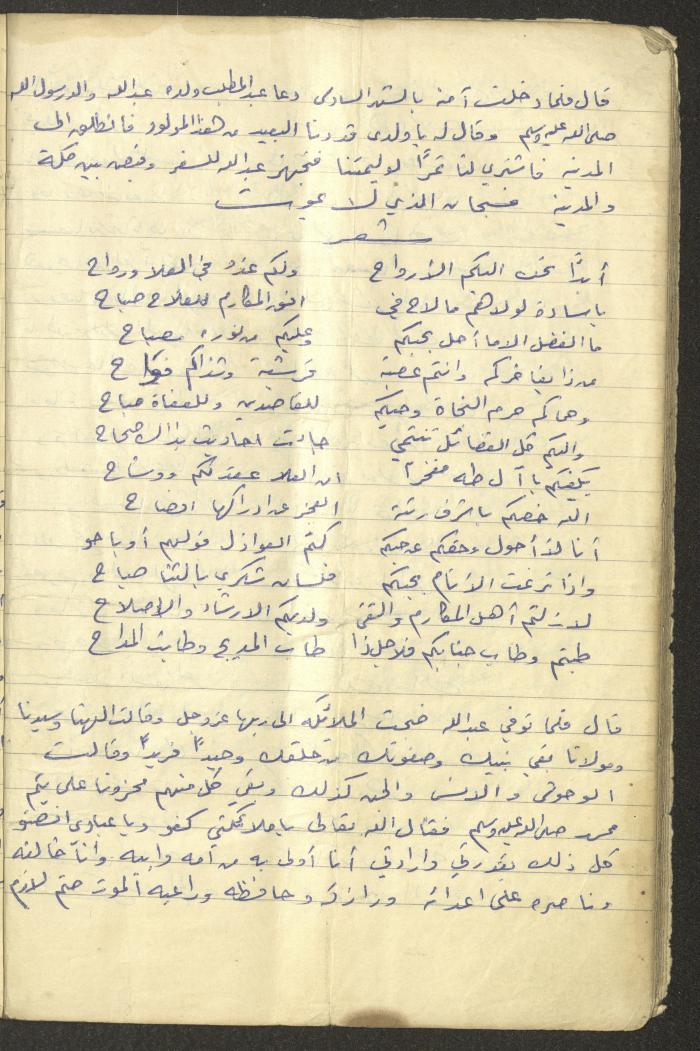 قال فلما دخلت آمنة بالشهر السادس دعا عبد المطلب ولده عبد الله والد رسول الله
صلى الله عليه وسلم وقال له يا ولدي قد دنا البعيد من هذا المولود فانطلق الى
المدينة فاشتري لنا تمرًا لوليمتنا فتجهز عبد الله للسفر وقبض بين مكة
والمدينة فسبحان الذي لا يموت
شعر
أبدًا تحن اليكم الأرواح ولكم غدو في العلا ورواح
يا سادة لولاهم ما لاح في افق المكارم للفلاح صباح
ما الفضل الا ما أحل بحبكم وعليكم من نوره مصباح
من ذا يفاخركم وانتم عصبة قرشية وشذاكم فواح
وحماكم حرم النجاة وحيكم للقاصدين وللعفاة مباح
واليكم كل الفضائل تنتمي جاءت احاديث بذاك صحاح
يكفيكم يا آل طه مفخرا ان العلا عقد لكم ووشاح
الله خصكم باشرف رتبة العجز عن ادراكها افضاح
أنا لذ أحول وحقكم عن حبكم كتم العواذل قولهم أو باحو
واذا ترنمت الأنام بحبكم فلسان شكري بالثنا صياح
لا زلتم أهل المكارم والتقى ولديكم الارشاد والاصلاح
طبتم وطاب جنابكم فلأجل ذا طاب المديح وطابت المداح
قال فلما توفي عبد الله ضجت الملائكة الى ربها عز وجل وقالت الهنا وسيدنا
ومولانا بقي نبيك وصفوتك من خلقك وحيدًا فريدًا وقالت
الوحوش والانس والجن كذلك وبقي كل منهم محزونا على يتم
محمد صلى الله عليه وسلم فقال الله تعالى يا ملائكتي كفو ويا عبادي انصتو
كل ذلك بقدرتي وارادتي أنا أولى به من أمه وابيه وأنا خالقه
وناصره على اعدائه ورازقه وحافظه وراعيه الموت حتم لازم